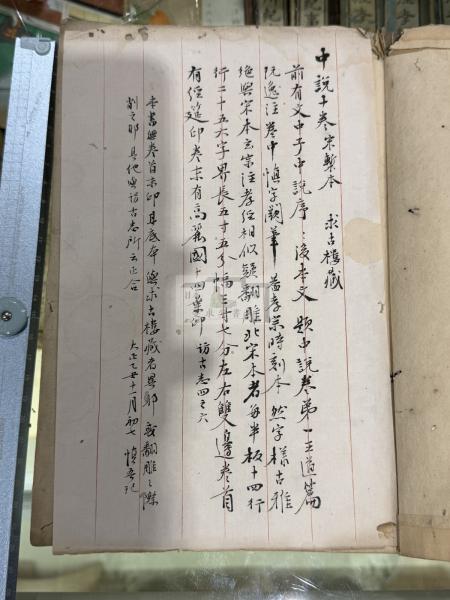 中說十卷宋槧本　求古樓藏
前有文中子中說序〻後本文題中說卷第一王道篇
阮逸注卷中慎字闕筆蓋孝宗時刻本然字樣古雅
絕與宋本玄宗注孝經相似疑翻雕北宋本者每半板十四行
行二十五六字界長五寸五分幅三寸七分左右雙邊卷首
有經筵印卷末有高麗國十四葉印　訪古志四之六
本書無卷首末印且底本與求古樓藏者異邪或翻雕之際
削之耶其他與訪古志所云正合
大正乙丑十二月初七　慎吾記